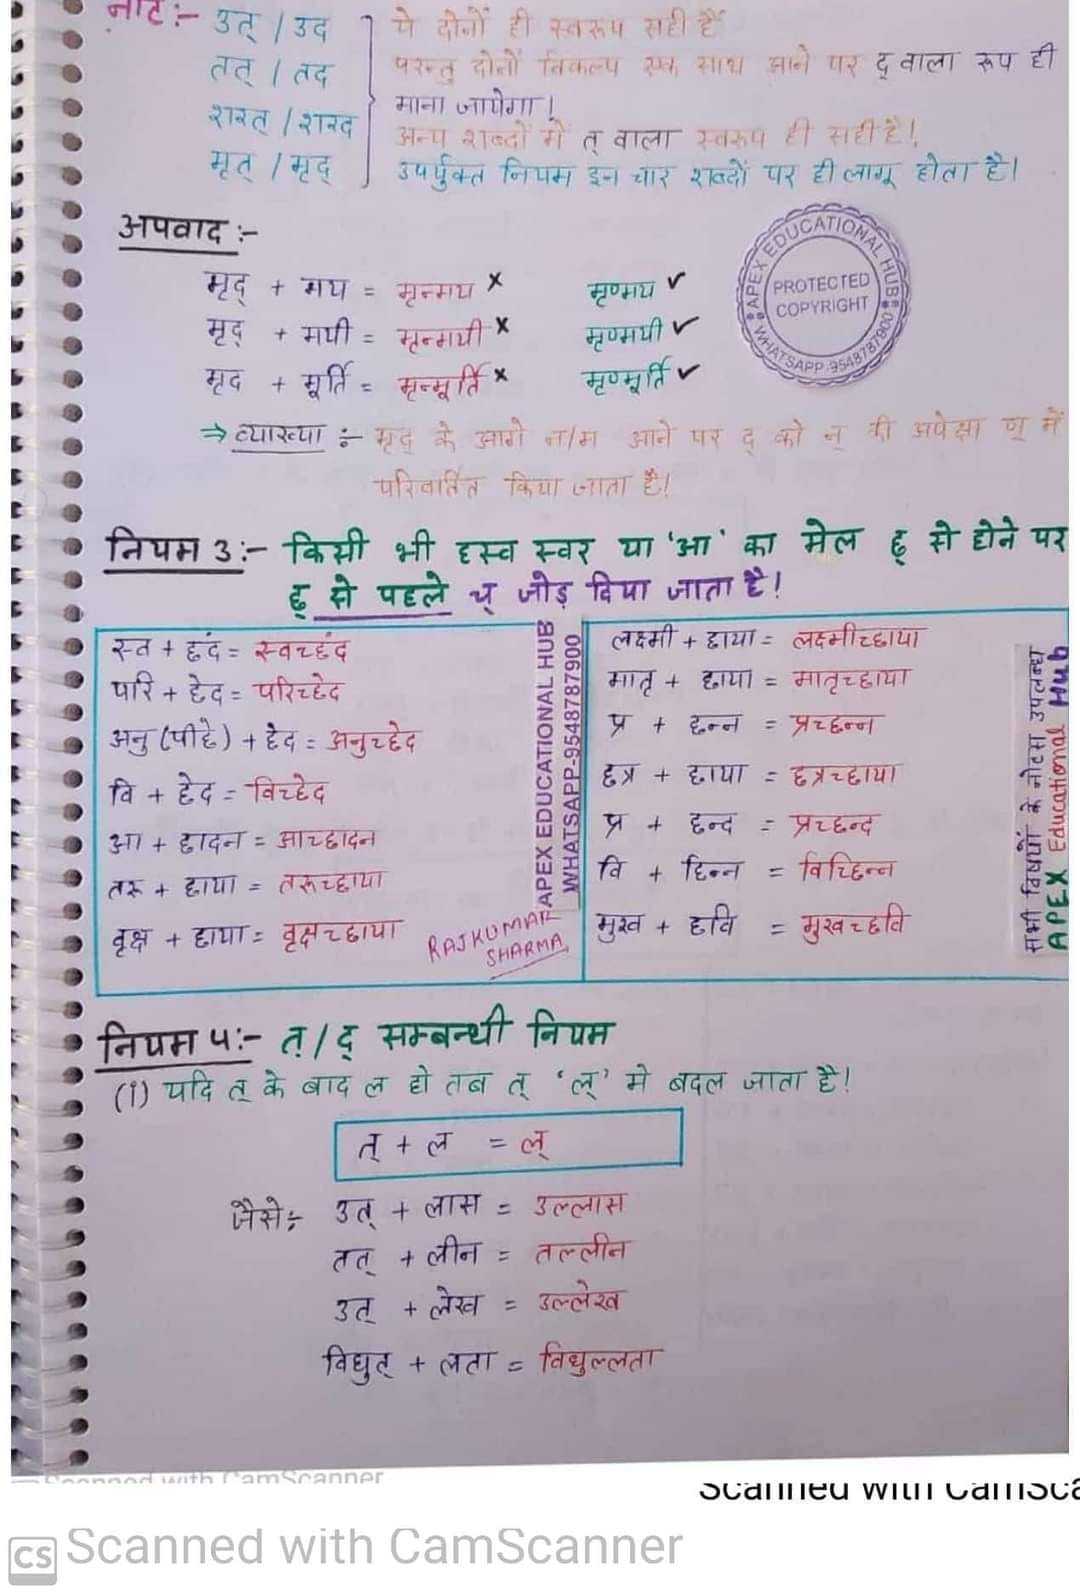 नोट:- उत् / उद ये दोनों ही स्वरूप सही हैं
तत् / तद परन्तु दोनों विकल्प एक साथ आने पर द् वाला रूप ही
माना जायेगा।
शरत् / शरद अन्य शब्दों में त् वाला स्वरूप ही सही है!
मृत् / मृद् उपर्युक्त नियम इन चार शब्दों पर ही लागू होता है।
अपवाद :-
मृद् + मय = मृन्मय × मृण्मय ✓
मृद् + मयी = मृन्मयी × मृण्मयी ✓
मृद + मूर्ति = मृन्मूर्ति × मृण्मूर्ति ✓
APEX EDUCATIONAL HUB
PROTECTED
COPYRIGHT
WHATSAPP:9548787900
⇒ व्याख्या :- मृद् के आगे न/म आने पर द् को न् की अपेक्षा ण् में
परिवर्तित किया जाता है।
नियम 3:- किसी भी हृस्व स्वर या 'आ' का मेल छ् से होने पर
छ् से पहले च् जोड़ दिया जाता है!
स्व + छंद = स्वच्छंद
परि + छेद = परिच्छेद
अनु (पीछे) + छेद = अनुच्छेद
वि + छेद = विच्छेद
आ + छादन = आच्छादन
तरू + छाया = तरूच्छाया
वृक्ष + छाया = वृक्षच्छाया
RAJKUMAR
SHARMA
APEX EDUCATIONAL HUB
WHATSAPP-9548787900
लक्ष्मी + छाया = लक्ष्मीच्छाया
मातृ + छाया = मातृच्छाया
प्र + छन्न = प्रच्छन्न
छत्र + छाया = छत्रच्छाया
प्र + छन्द = प्रच्छन्द
वि + छिन्न = विच्छिन्न
मुख + छवि = मुखच्छवि
सभी विषयों के नोटस उपलब्ध
APEX Educational Hub
नियम ५:- त्/द् सम्बन्धी नियम
(i) यदि त् के बाद ल हो तब त् 'ल्' मे बदल जाता है!
त् + ल = ल्
जैसे:- उत् + लास = उल्लास
तत् + लीन = तल्लीन
उत् + लेख = उल्लेख
विधुत् + लता = विधुल्लता
Scanned with CamScanner
Scanned with CamSca
CS Scanned with CamScanner